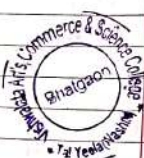 Vishwalata Art's, Commerce & Science College
Bhatgaon
* Tal Yeola